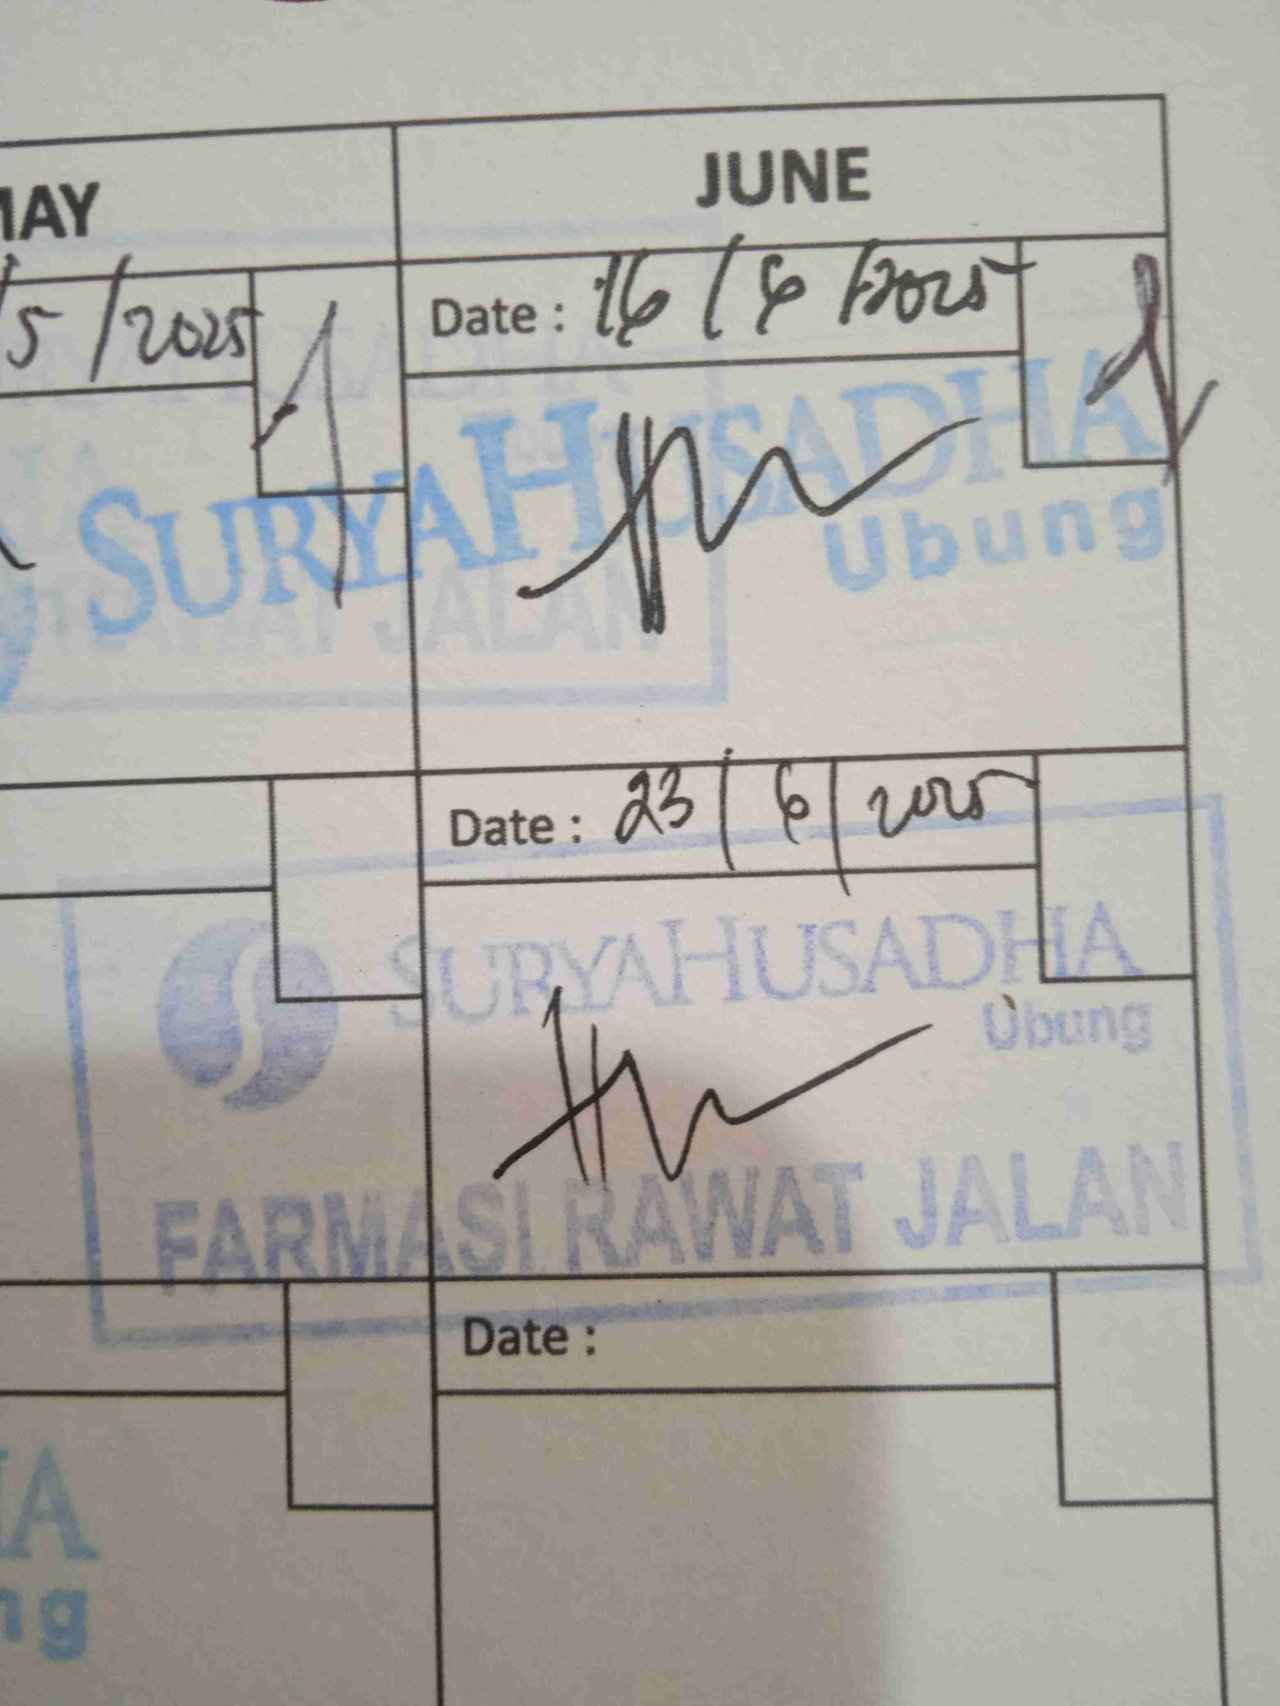 MAY
JUNE
/5/2025
Date : 16/6/2025
SURYAHUSADHA
Ubung
RAWAT JALAN
Date : 23/6/2025
SURYAHUSADHA
Ubung
FARMASI RAWAT JALAN
Date :
HA
ng